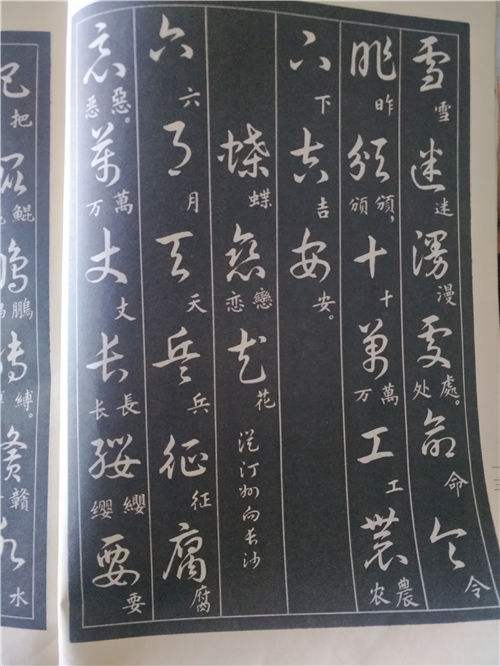 雪雪迷迷漫漫處处處。命命令令
昨昨頒颁頒,十十萬万萬工工農农農
下下吉吉安安。
蝶蝶戀恋戀花花從汀州向长沙
六六月月天天兵兵征征腐腐
惡恶惡。萬万萬丈丈长长長纓缨纓要要
把鯤鵬縛。贛水